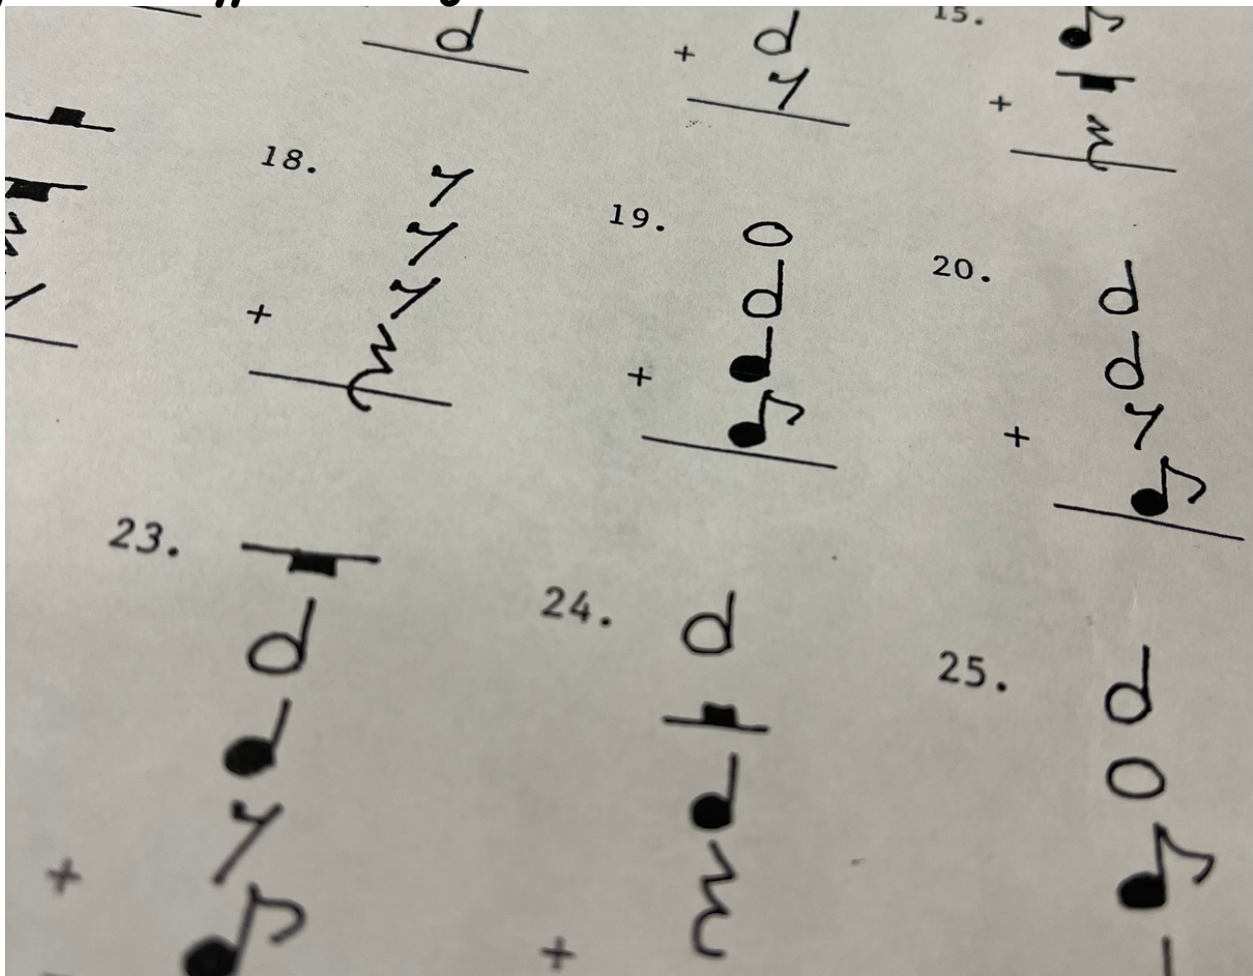 15.
+
+
18.
+
19.
+
20.
+
23.
+
24.
+
25.